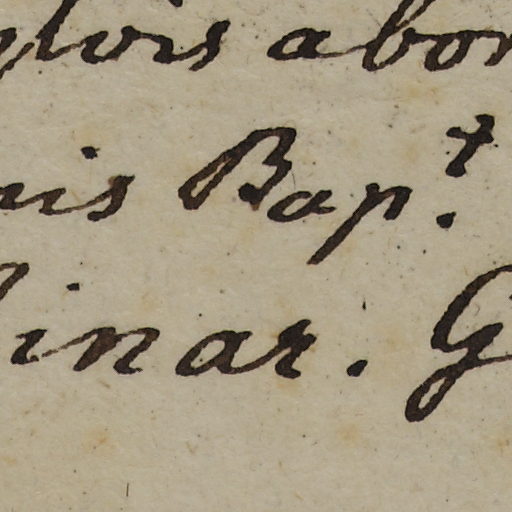 glois abor
nis Bap.t
linar. G